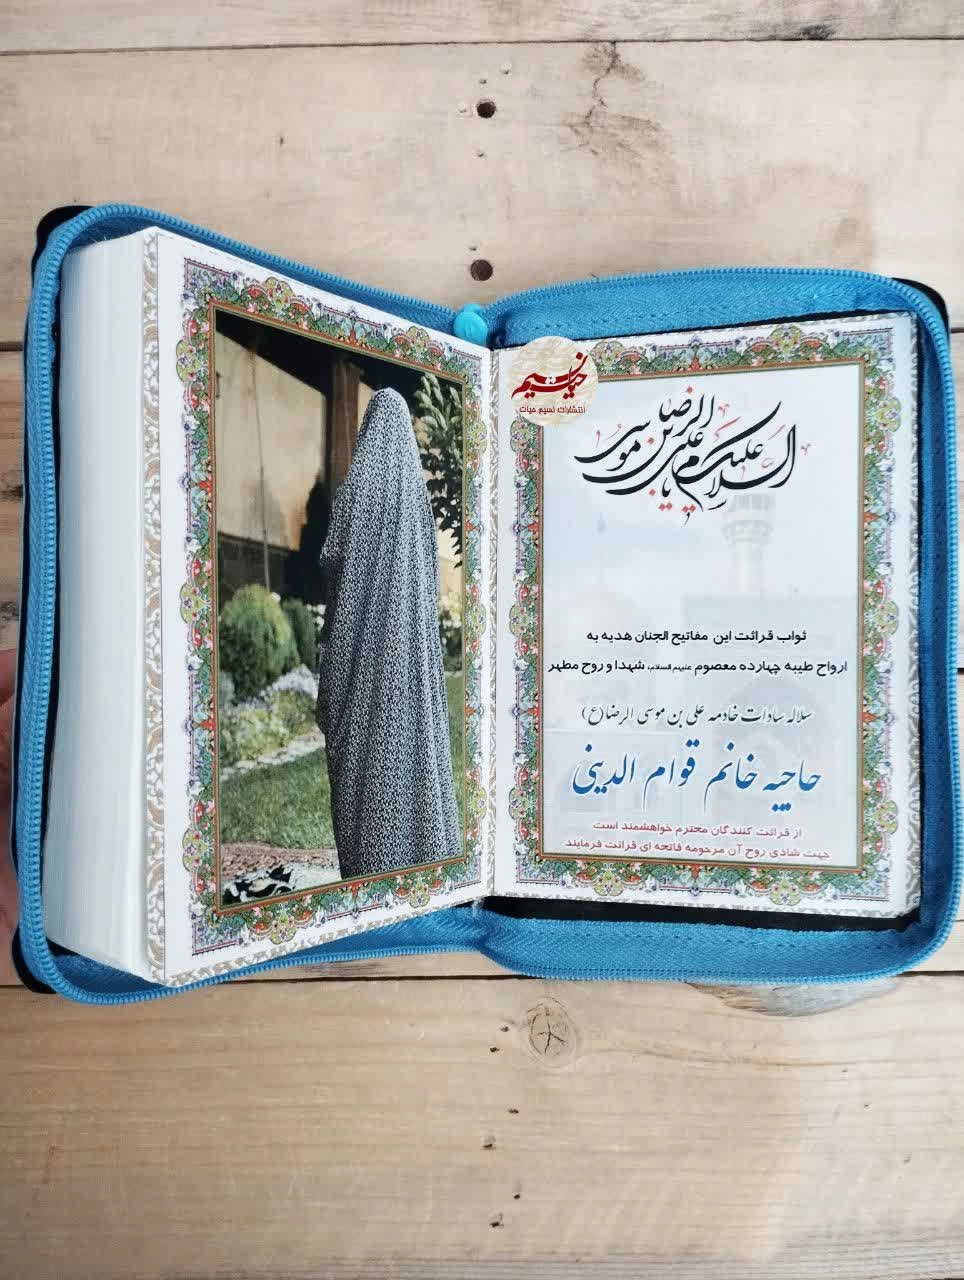 نسیم حیات
انتشارات نسیم حیات
السلام علیک یا علی بن موسی الرضا
ثواب قرائت این مفاتیح الجنان هدیه به
ارواح طیبه چهارده معصوم علیهم السلام، شهدا و روح مطهر
سلاله سادات خادمه علی بن موسی الرضا(ع)
حاجیه خانم قوام الدینی
از قرائت کنندگان محترم خواهشمند است
جهت شادی روح آن مرحومه فاتحه ای قرائت فرمایند